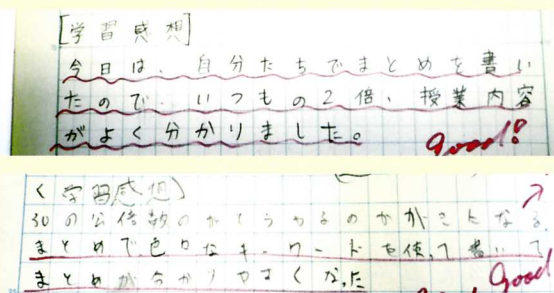 [学習感想]
今日は、自分たちでまとめを書い
たので、いつもの2倍、授業内容
がよく分かりました。
Good!
〈学習感想〉
30の公倍数の
まとめで色々なキーワードを使って書いて
まとめが分かりやすくなった
Good